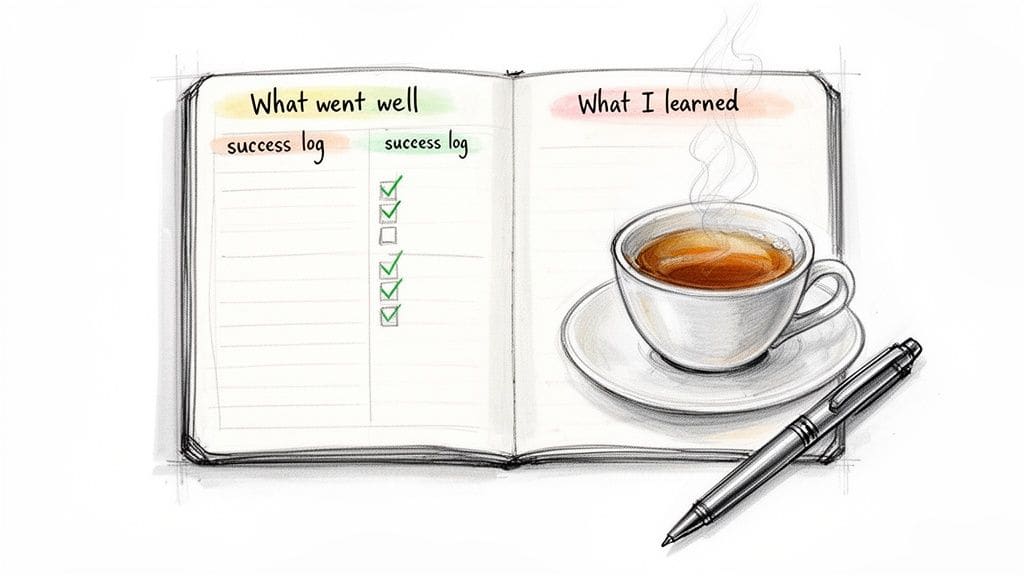 What went well
success log
success log
What I learned